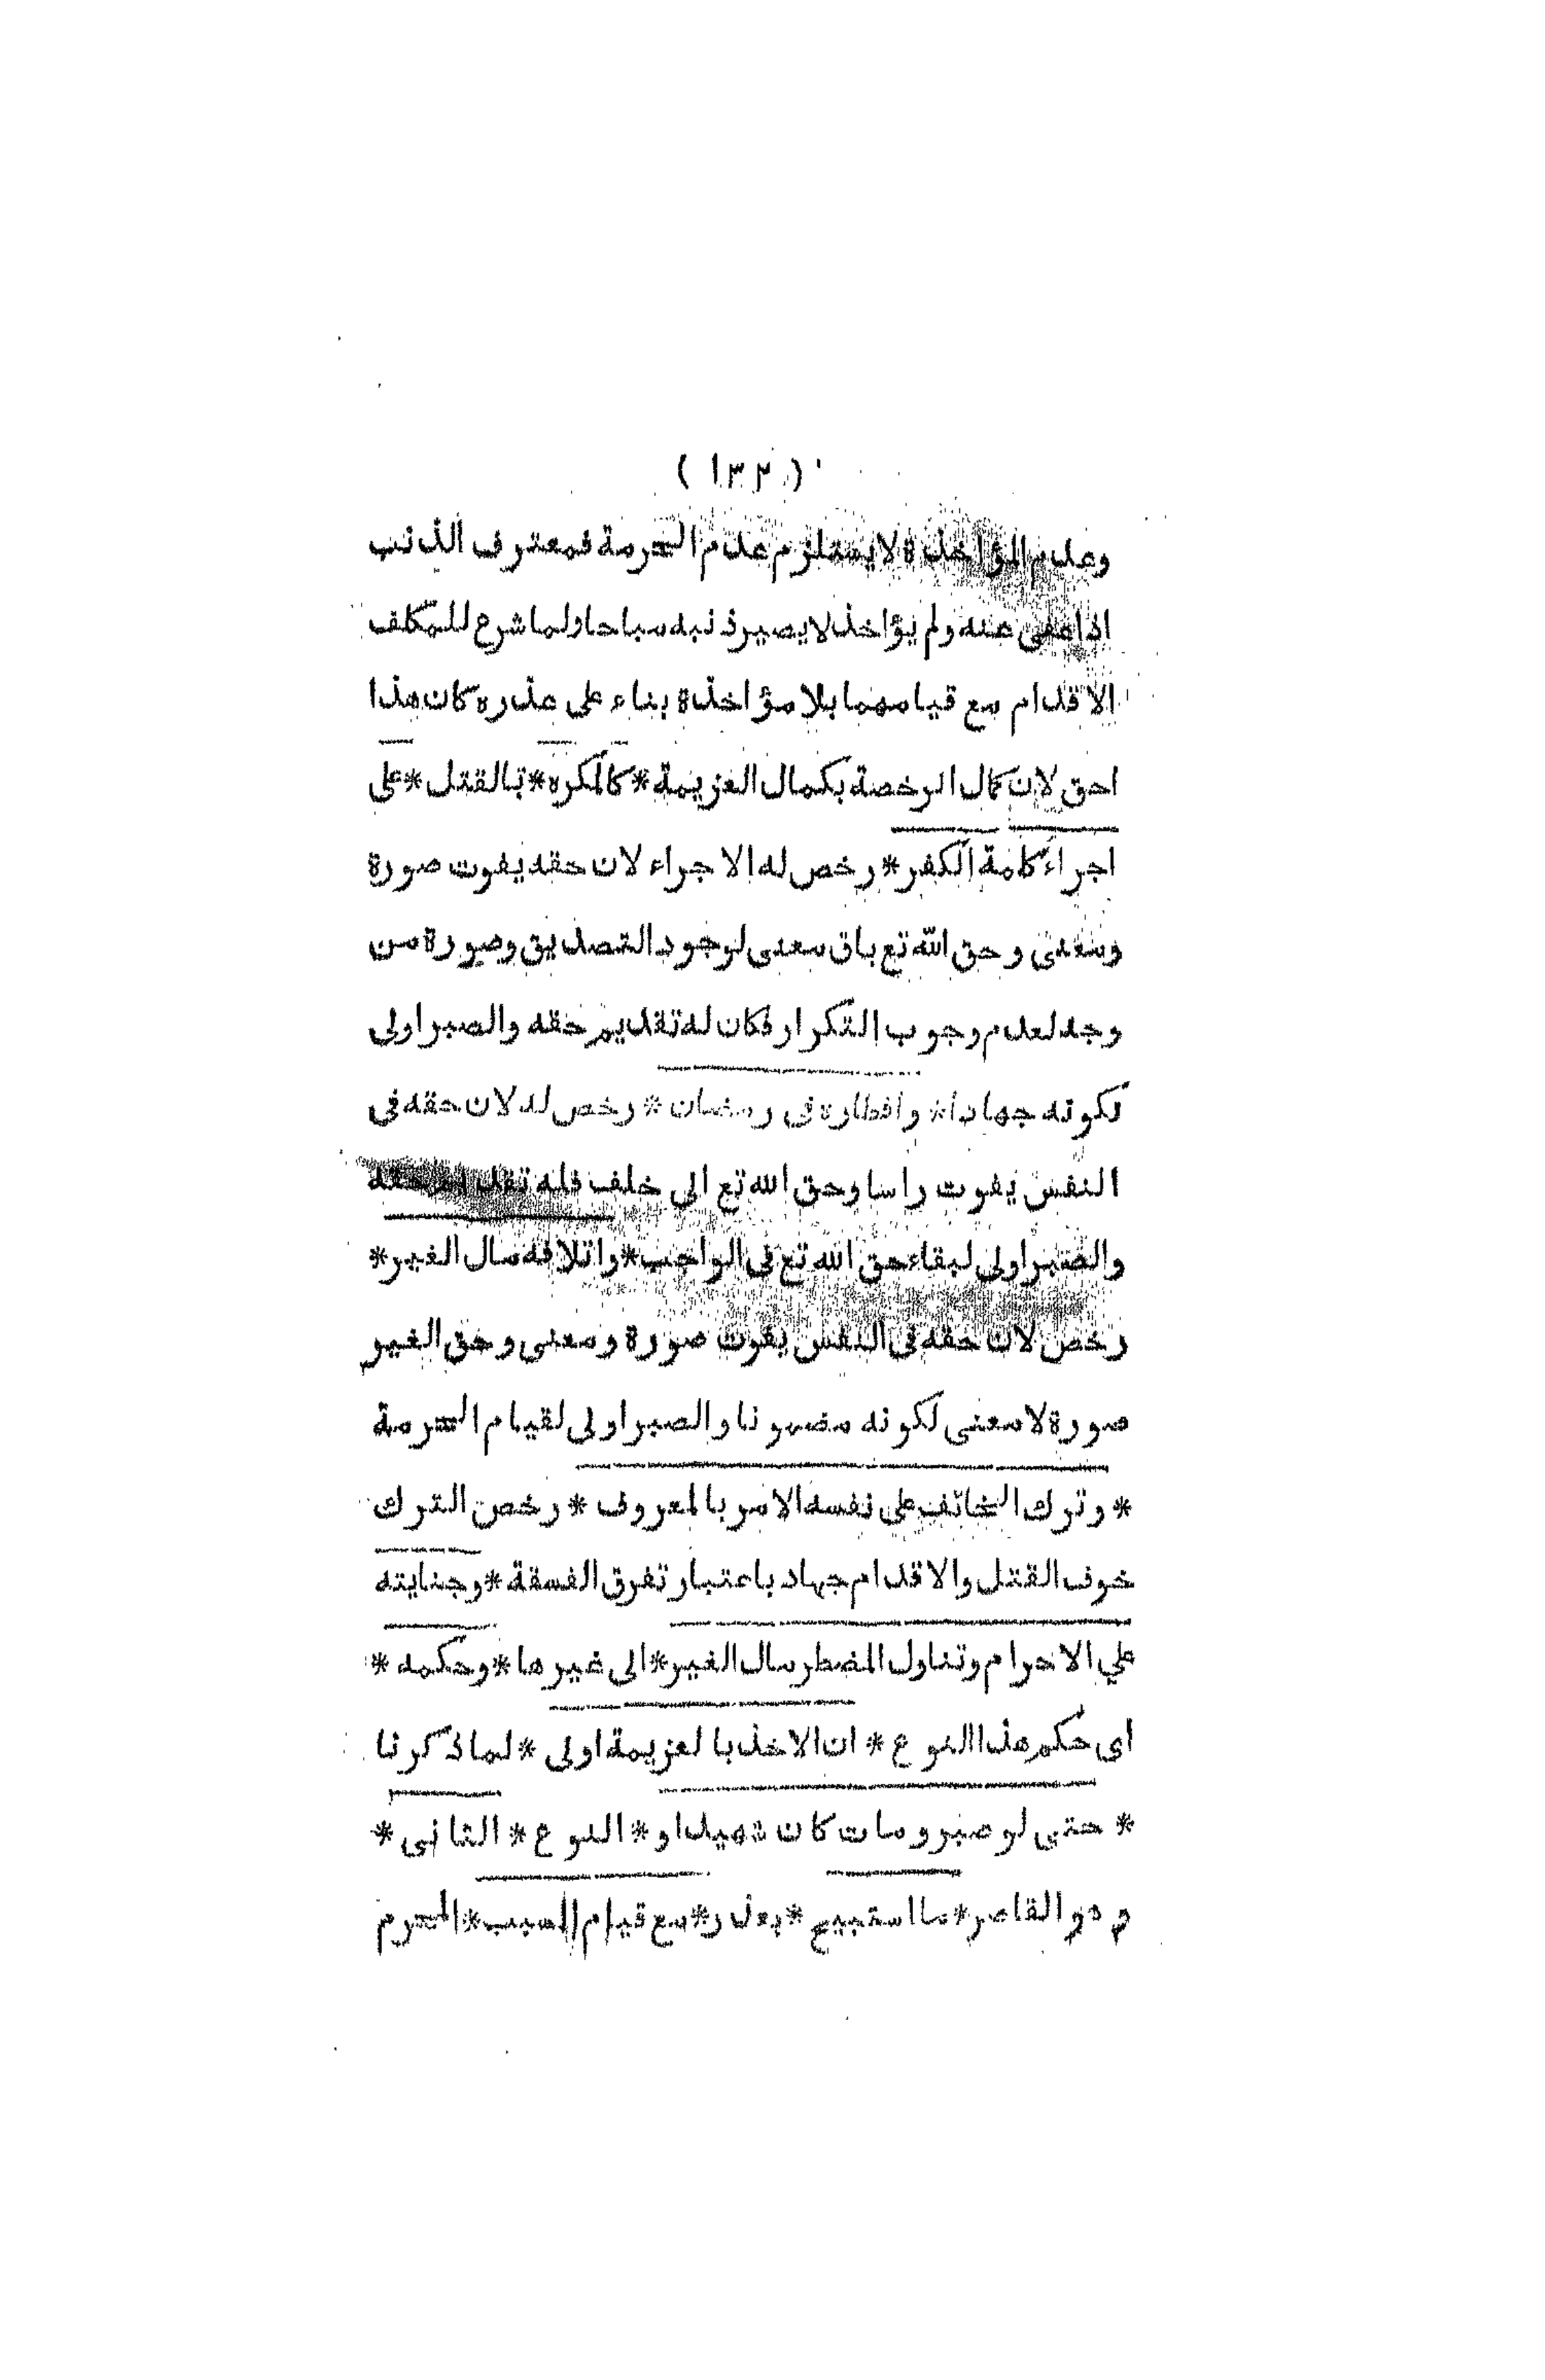 ( ١٣٢ )
وعدم المؤاخذة لا يستلزم عدم الحرمة فمعترف الذنب
اذا عفى عنه ولم يؤاخذ لا يصير ذنبه مباحا ولما شرع للمكلف
الاقدام مع قيامهما بلا مؤاخذة بناء على عذره كان هذا
احق لان كمال الرخصة بكمال العزيمة * كالمكره * بالقتل * على
اجراء كلمة الكفر * رخص له الاجراء لان حقه يفوت صورة
ومعنى وحق الله تع باق معنى لوجود التصديق وصورة من
وجه لعدم وجوب التكرار فكان له تقديم حقه والصبر اولى
لكونه جهادا * وافطاره فى رمضان * رخص له لان حقه فى
النفس يفوت راسا وحق الله تع الى خلف فله تقديم حقه
والصبر اولى لبقاء حق الله تع فى الواجب * واتلافه مال الغير *
رخص لان حقه فى النفس يفوت صورة ومعنى وحق الغير
صورة لا معنى لكونه مضمونا والصبر اولى لقيام الحرمة
* وترك الخائف على نفسه الامر بالمعروف * رخص الترك
خوف القتل والاقدام جهاد باعتبار تفرق الفسقة * وجنايته
علي الاحرام وتناول المضطر مال الغير * الى غيرها * وحكمه *
اى حكم هذا النوع * ان الاخذ بالعزيمة اولى * لما ذكرنا
* حتى لو صبر ومات كان شهيدا و * النوع * الثانى *
وهو القاصر * ما استبيح * بعذر * مع قيام السبب * المحرم